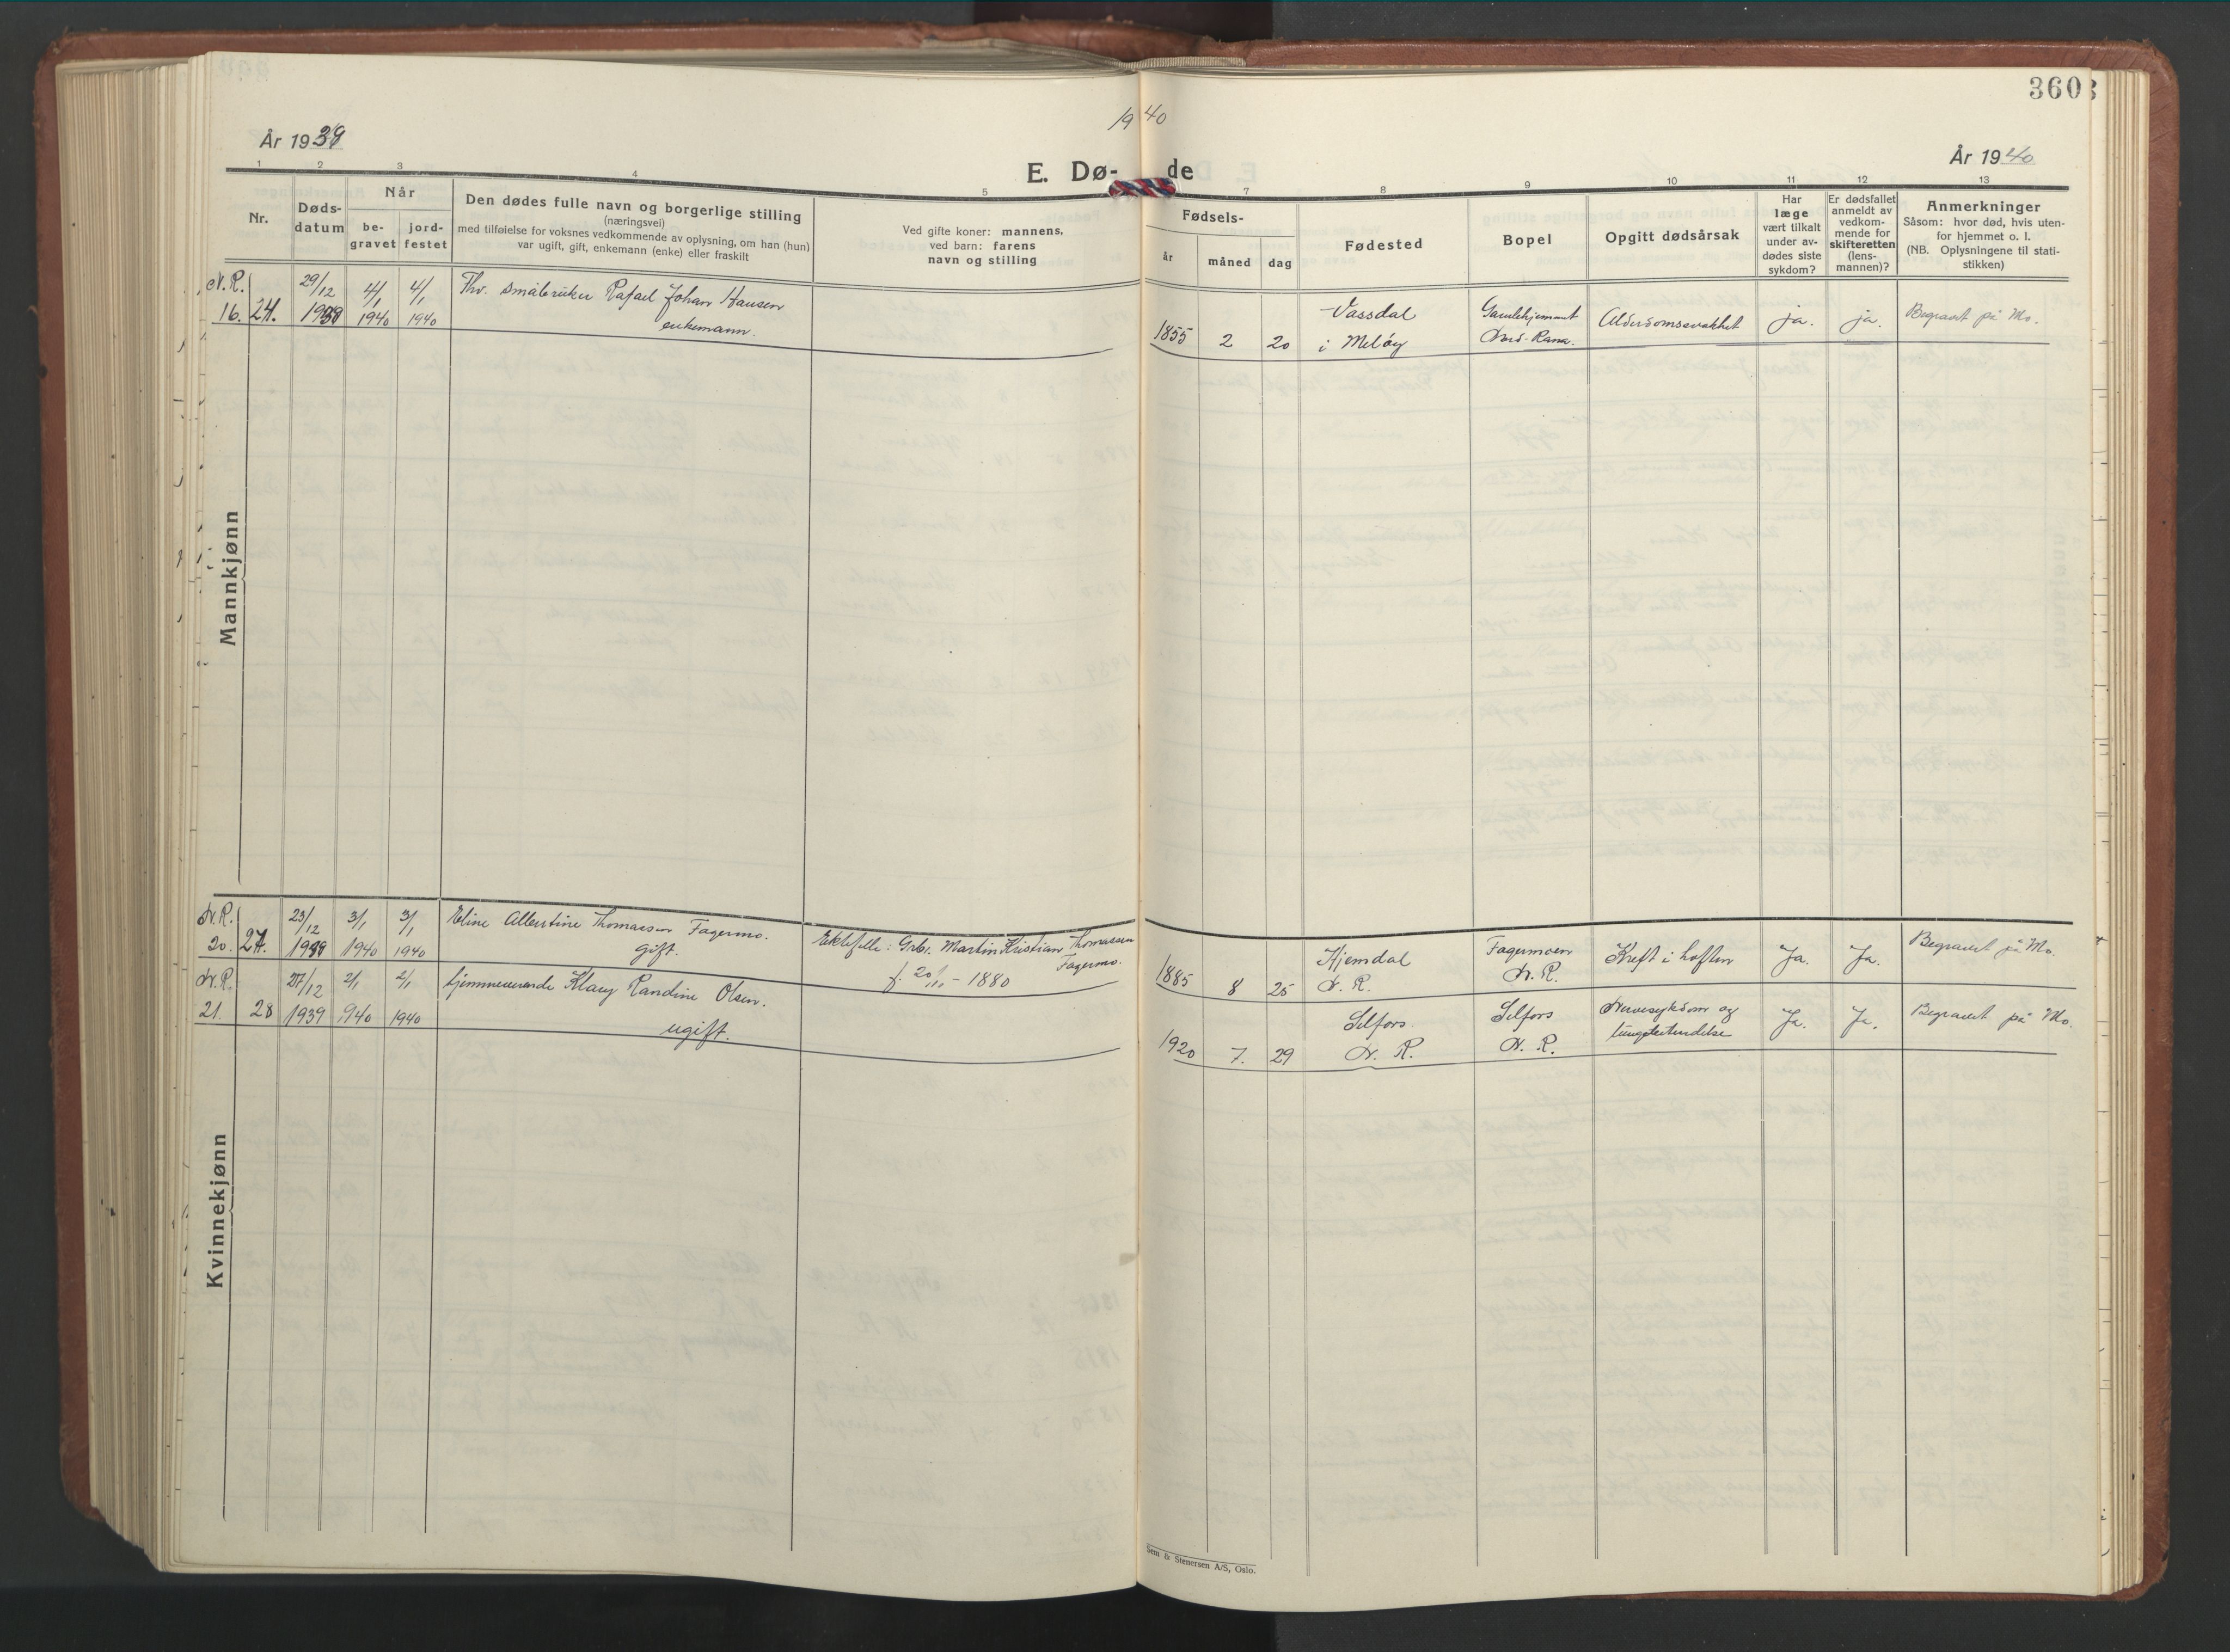 3603
1940
År 1939
År 1940
E. Dø- de
1 2 3 4 5 7 8 9 10 11 12 13
Nr.
Døds-
datum
Når
be-
gravet
jord-
festet
Den dødes fulle navn og borgerlige stilling
(næringsvei)
med tilføielse for voksnes vedkommende av oplysning, om han (hun)
var ugift, gift, enkemann (enke) eller fraskilt
Ved gifte koner: mannens,
ved barn: farens
navn og stilling
Fødsels-
år
måned
dag
Fødested
Bopel
Opgitt dødsårsak
Har
læge
vært tilkalt
under av-
dødes siste
sykdom?
Er dødsfallet
anmeldt av
vedkom-
mende for
skifteretten
(lens-
mannen)?
Anmerkninger
Såsom: hvor død, hvis uten-
for hjemmet o. l.
(NB. Oplysningene til stati-
stikken)
Mannkjønn
N.R. 29/12 4/1 4/1 Thv. småbruker Rafael Johan Hansen
16. 24. 1939 1940 1940 enkemann.
Vassdal Gamlehjemmet Alderdomssvakhet ja. ja. Begravet på Mo.
1855 2 20 i Meløy Nord-Rana.
Kvinnekjønn
N.R. 23/12 3/1 3/1 Eline Albertine Thomassen Fagermo.
20. 27. 1939 1940 1940 gift.
Ektefelle: Grbr. Martin Kristian Thomassen
Fagermo.
f. 20/11 - 1880
Hjemdal Fagermoen Kreft i hoften Ja. Ja. Begravet på Mo.
1885 8 25 N. R. N. R.
N.R. 27/12 2/1 2/1 hjemmeværende Klary Randine Olsen.
21. 28 1939 940 1940 ugift.
Selfors Selfors Nervesykdom og Ja. Ja. Begravet på Mo.
lungebetendelse
1920 7. 29 N. R. N. R.
Sem & Stenersen A/S, Oslo.